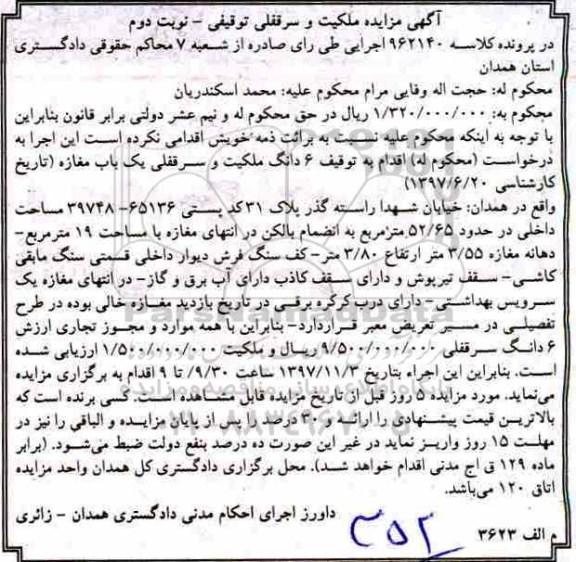 آگهی مزایده ملکیت و سرقفلی توقیفی - نوبت دوم
در پرونده کلاسه ۹۶۲۱۴۰ اجرایی طی رای صادره از شعبه ۷ محاکم حقوقی دادگستری
استان همدان
محکوم له: حجت اله وفایی مرام محکوم علیه: محمد اسکندریان
محکوم به: ۱/۳۲۰/۰۰۰/۰۰۰ ریال در حق محکوم له و نیم عشر دولتی برابر قانون بنابراین
با توجه به اینکه محکوم علیه نسبت به برائت ذمه خویش اقدامی نکرده است این اجرا به
درخواست (محکوم له) اقدام به توقیف ۶ دانگ ملکیت و سرقفلی یک باب مغازه (تاریخ
کارشناسی ۱۳۹۷/۶/۲۰)
واقع در همدان: خیابان شهدا راسته گذر پلاک ۳۱ کد پستی ۶۵۱۳۶- ۳۹۷۴۸ مساحت
داخلی در حدود ۵۲/۶۵ مترمربع به انضمام بالکن در انتهای مغازه با مساحت ۱۹ مترمربع-
دهانه مغازه ۳/۵۵ متر ارتفاع ۳/۸۰ متر- کف سنگ فرش دیوار داخلی قسمتی سنگ مابقی
کاشی- سقف تیرپوش و دارای سقف کاذب دارای آب برق و گاز- در انتهای مغازه یک
سرویس بهداشتی- دارای درب کرکره برقی در تاریخ بازدید مغازه خالی بوده در طرح
تفصیلی در مسیر تعریض معبر قراردارد- بنابراین با همه موارد و مجوز تجاری ارزش
۶ دانگ سرقفلی ۹/۵۰۰/۰۰۰/۰۰۰ ریال و ملکیت ۱/۵۰۰/۰۰۰/۰۰۰ ارزیابی شده
است. بنابراین این اجراء بتاریخ ۱۳۹۷/۱۱/۳ ساعت ۹/۳۰/ تا ۹ اقدام به برگزاری مزایده
می‌نماید. مورد مزایده ۵ روز قبل از تاریخ مزایده قابل مشاهده است. کسی برنده است که
بالاترین قیمت پیشنهادی را ارائه و ۳۰ درصد را پس از پایان مزایده و الباقی را نیز در
مهلت ۱۵ روز واریز نماید در غیر این صورت ده درصد بنفع دولت ضبط می‌شود. (برابر
ماده ۱۲۹ ق اج مدنی اقدام خواهد شد). محل برگزاری دادگستری کل همدان واحد مزایده
اتاق ۱۲۰ می‌باشد.
داورز اجرای احکام مدنی دادگستری همدان - زائری
م الف ۳۶۲۳
ParsNamadData